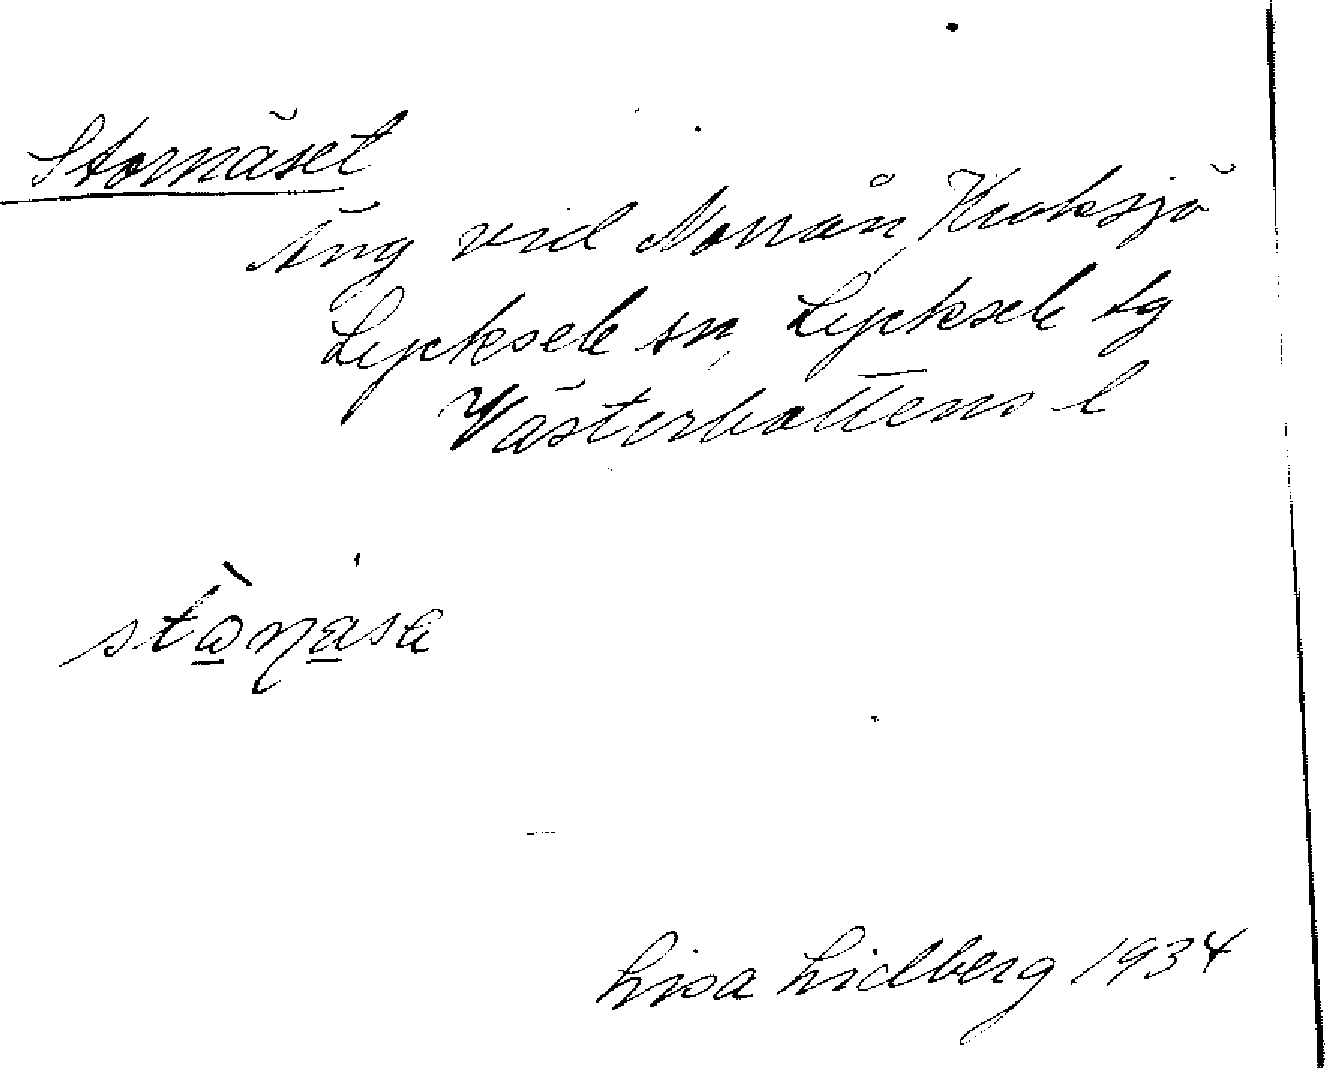 Stornäset
Äng vid Norrån, Kroksjö
Lycksele sn, Lycksele tg
Västerbottens l
Lisa Lidberg 1934